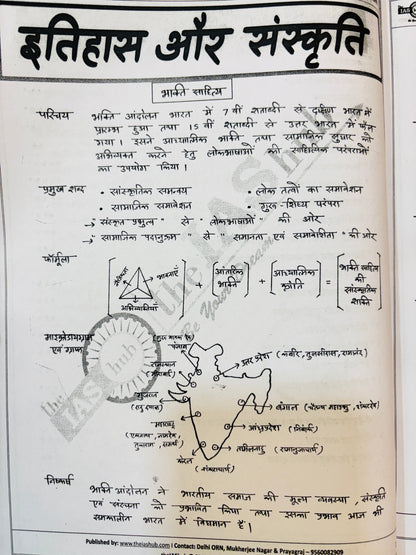 इतिहास और संस्कृति
भक्ति साहित्य
परिचय भक्ति आंदोलन भारत में 7 वीं शताब्दी से दक्षिण भारत में
प्रारम्भ हुआ तथा 15 वीं शताब्दी से उत्तर भारत में फैल
गया। इसने आध्यात्मिक भक्ति तथा सामाजिक सुधार को
अभिव्यक्त करने हेतु लोकभाषाओं की साहित्यिक परंपराओं
का उपयोग किया।
प्रमुख शब्द • सांस्कृतिक समन्वय • लोक तत्वों का समावेशन
• सामाजिक समावेशन • गुरू-शिष्य परंपरा
→ "संस्कृत प्रभुत्व" से "लोकभाषाओं" की ओर
→ "सामाजिक पदानुक्रम" से "समानता एवं समावेशिता" की ओर
फॉर्मूला
भावनाएँ
अभिव्यक्तियां
+ आंतरिक भक्ति + आध्यात्मिक क्रांति = भक्ति साहित्य की सांस्कृतिक शक्ति
एवं ग्राफ
पंजाब
राजस्थान
(मीराबाई)
उत्तर प्रदेश (कबीर, तुलसीदास,
गुजरात
बंगाल
आंध्रप्रदेश
तमिलनाडु (रामानुजाचार्य)
केरल
(शंकराचार्य)
निष्कर्ष भक्ति आंदोलन ने भारतीय समाज की मूल्य व्यवस्था, संस्कृति
एवं संरचना को प्रभावित किया तथा इसका प्रभाव आज भी
समकालीन भारत में विद्यमान है।
the IAS hub
Be Your Dream
Published by: www.theiashub.com | Contact: Delhi ORN, Mukherjee Nagar & Prayagraj - 9560082909